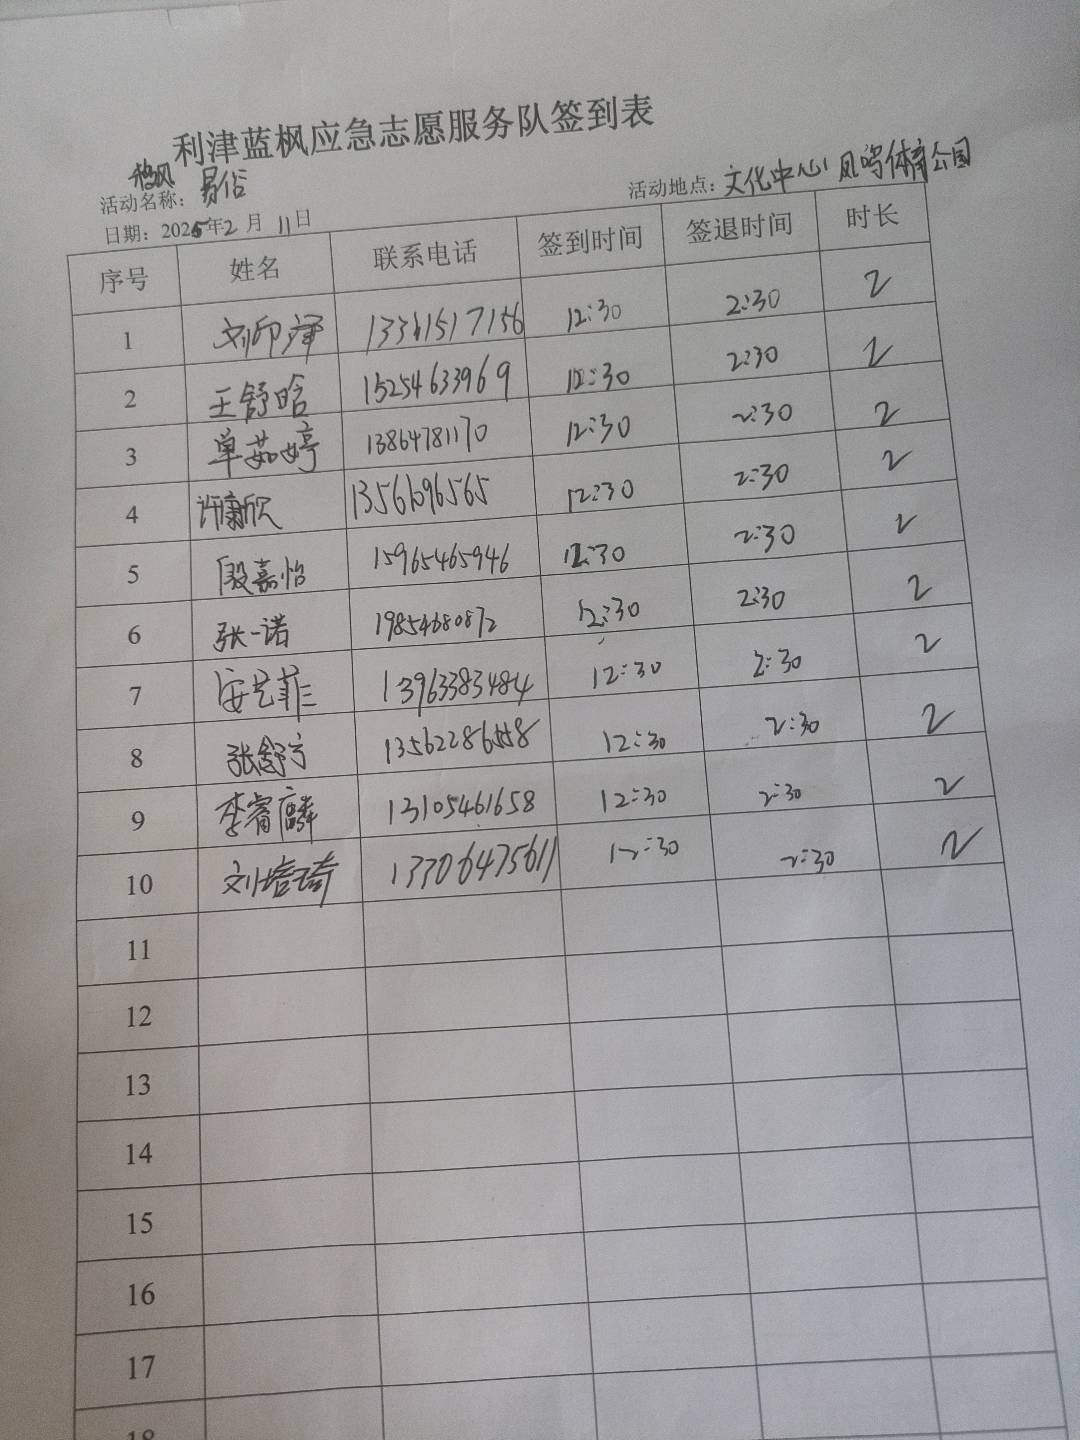 利津蓝枫应急志愿服务队签到表
活动名称：移风易俗
活动地点：文化中心 凤鸣体育公园
日期：2025年2月11日
序号 姓名 联系电话 签到时间 签退时间 时长
1 刘 12:30 2:30 2
2 王舒晗 15254633969 12:30 2:30 2
3 单茹婷 13864781170 12:30 2:30 2
4 许 欣 12:30 2:30 2
5 殷嘉怡 15965465946 12:30 2:30 2
6 张一诺 19854680872 12:30 2:30 2
7 安艺菲 13963383484 12:30 2:30 2
8 张舒宁 13562286558 12:30 2:30 2
9 李睿麟 13105461658 12:30 2:30 2
10 刘培琦 13306475611 12:30 2:30 2
11
12
13
14
15
16
17
18